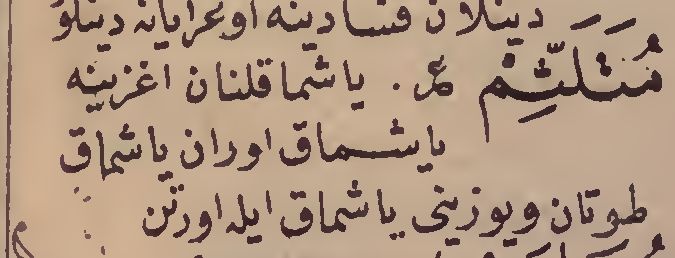 دينلان فسادينه اوغرايانه دينلو
مُتَلَثِّمْ عر. ياشماقلنان اغزينه
ياشماق اوران ياشماق
طوتان ويوزينى ياشماق ايله اورتن